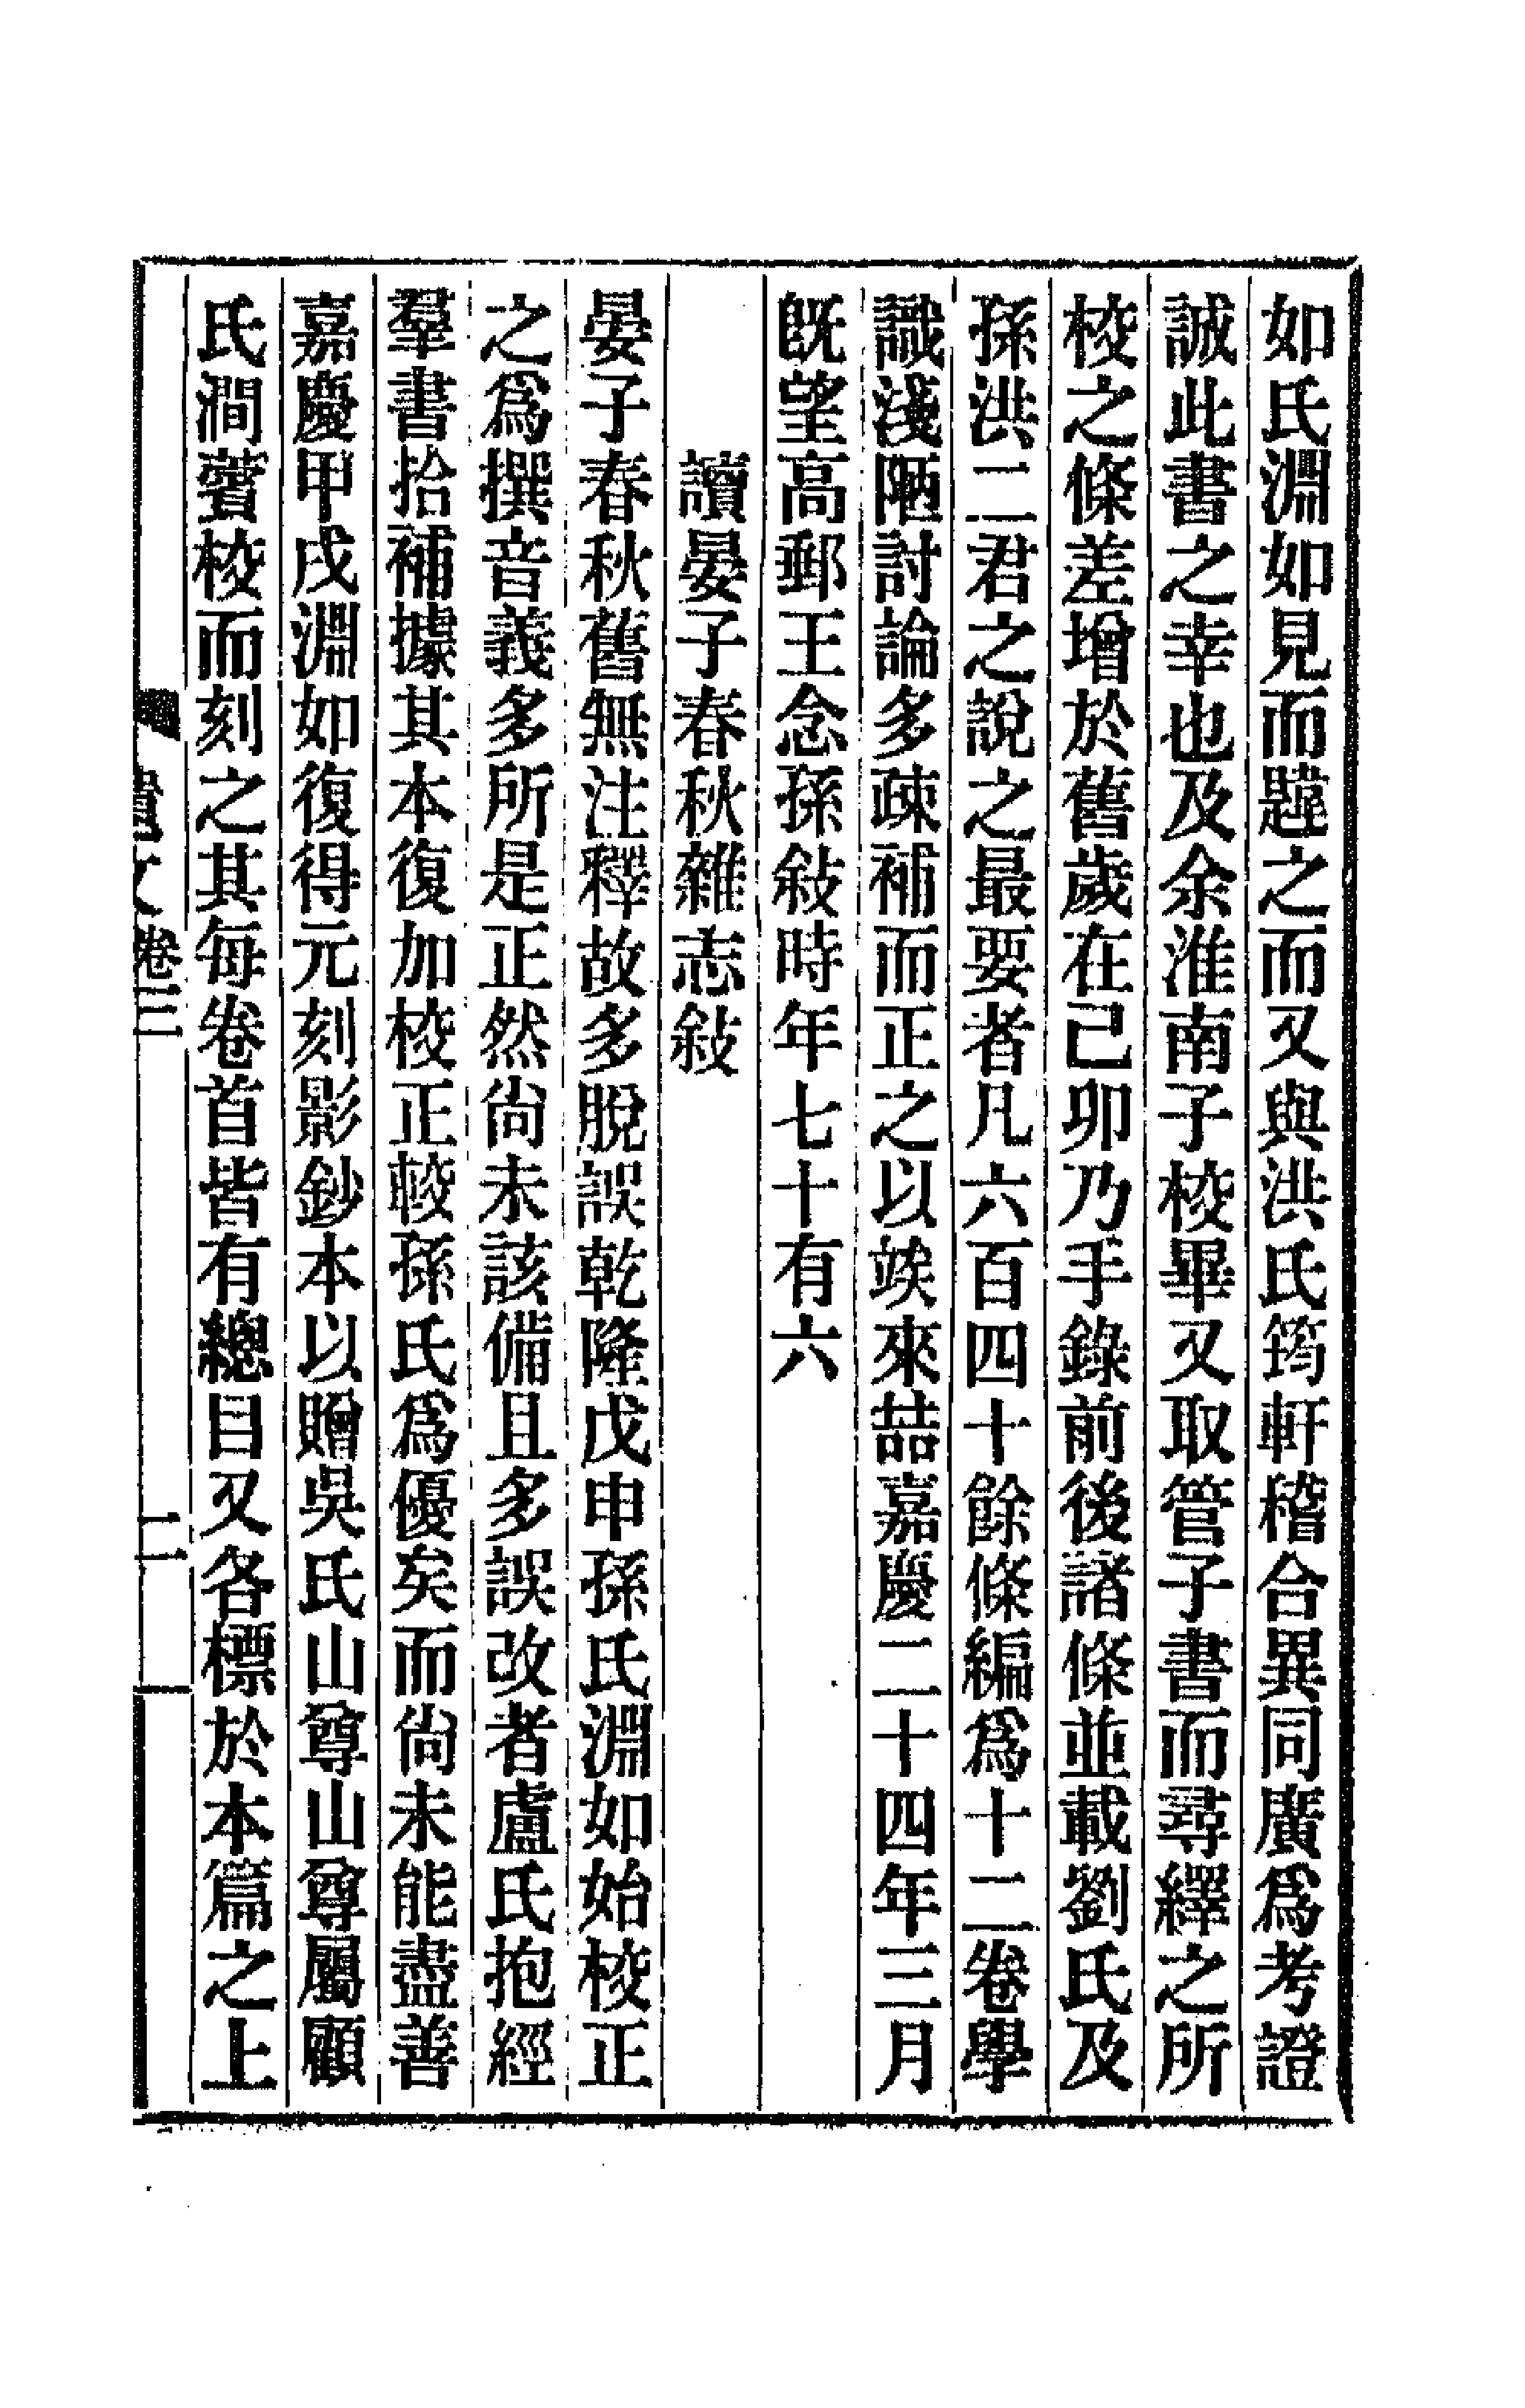 如氏淵如見而韙之而又與洪氏筠軒稽合異同廣爲考證
誠此書之幸也及余淮南子校畢又取管子書而尋繹之所
校之條差增於舊歲在己卯乃手錄前後諸條並載劉氏及
孫洪二君之說之最要者凡六百四十餘條編爲十二卷學
識淺陋討論多疎補而正之以竢來喆嘉慶二十四年三月
旣望高郵王念孫敍時年七十有六
讀晏子春秋雜志敍
晏子春秋舊無注釋故多脫誤乾隆戊申孫氏淵如始校正
之爲撰音義多所是正然尙未該備且多誤改者盧氏抱經
羣書拾補據其本復加校正較孫氏爲優矣而尙未能盡善
嘉慶甲戌淵如復得元刻影鈔本以贈吳氏山尊山尊屬顧
氏澗薲校而刻之其每卷首皆有總目又各標於本篇之上
遺文卷三
二